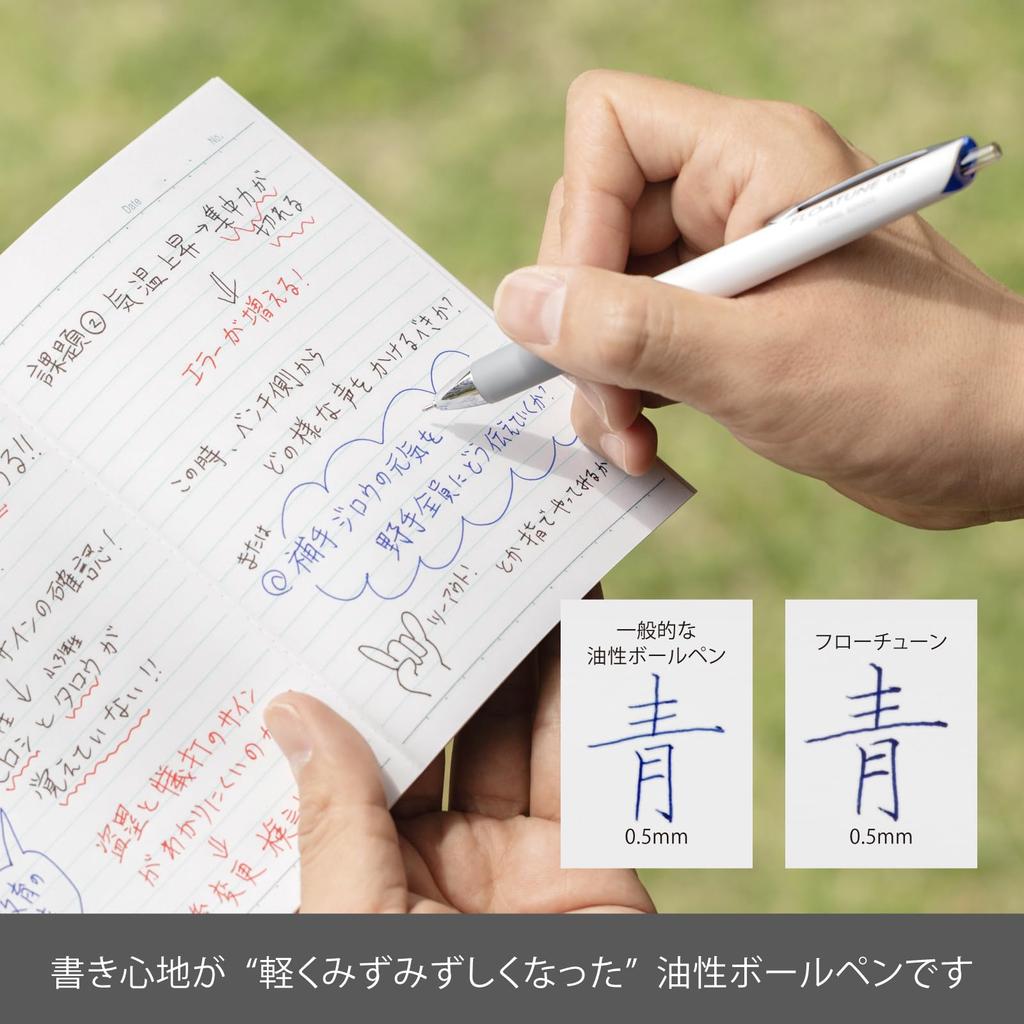 No.
Date
課題② 気温上昇→集中力が
切れる
↓
エラーが増える!
この時、ベンチ側から
どの様な声をかけるべきか?
または
◎補手ジロウの元気を
野手全員にどう伝えていくか?
ツーアウト!
とか指でやってみるか
る!!
サインの確認!
↓
ヒロシとタロウが
覚えていない!!
盗塁と犠打のサイン
がわかりにくいのか
↓
変更 検討
FLOATUNE 05
一般的な
油性ボールペン
青
0.5mm
フローチューン
青
0.5mm
書き心地が“軽くみずみずしくなった”油性ボールペンです